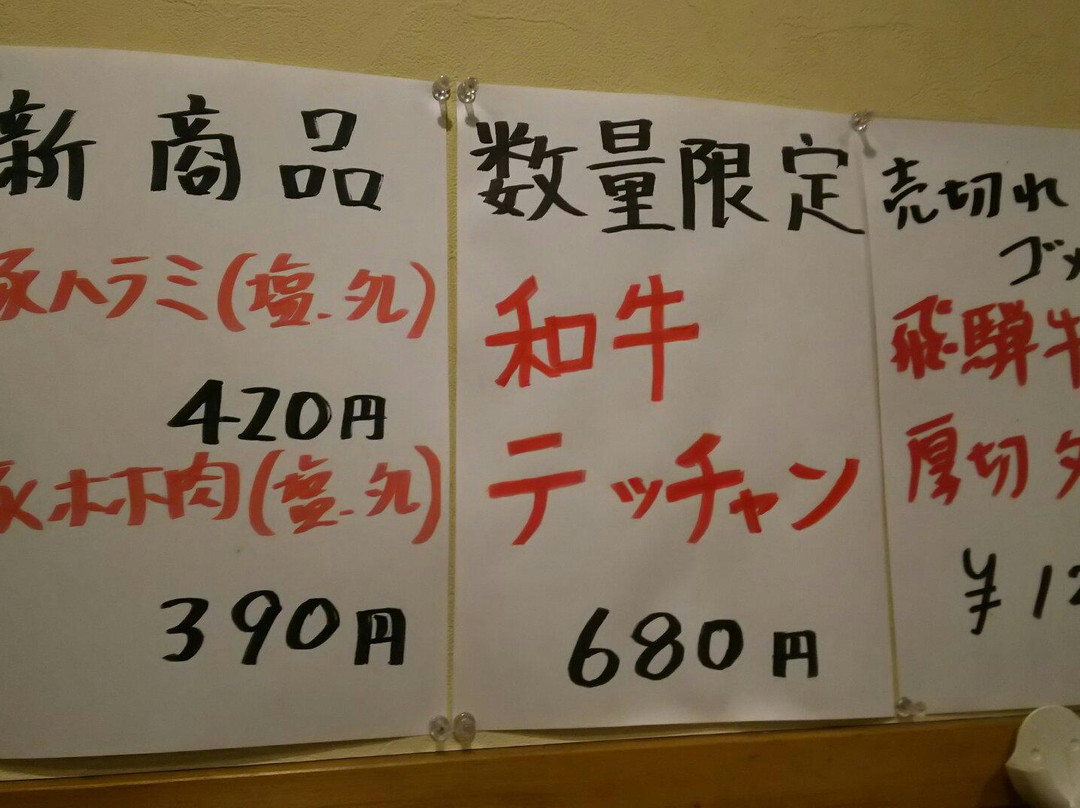 新商品
豚ハラミ(塩.タレ)
420円
豚ホホ肉(塩.タレ)
390円
数量限定
和牛
テッチャン
680円
売切れ
ゴメ
飛騨牛
厚切タ
¥12